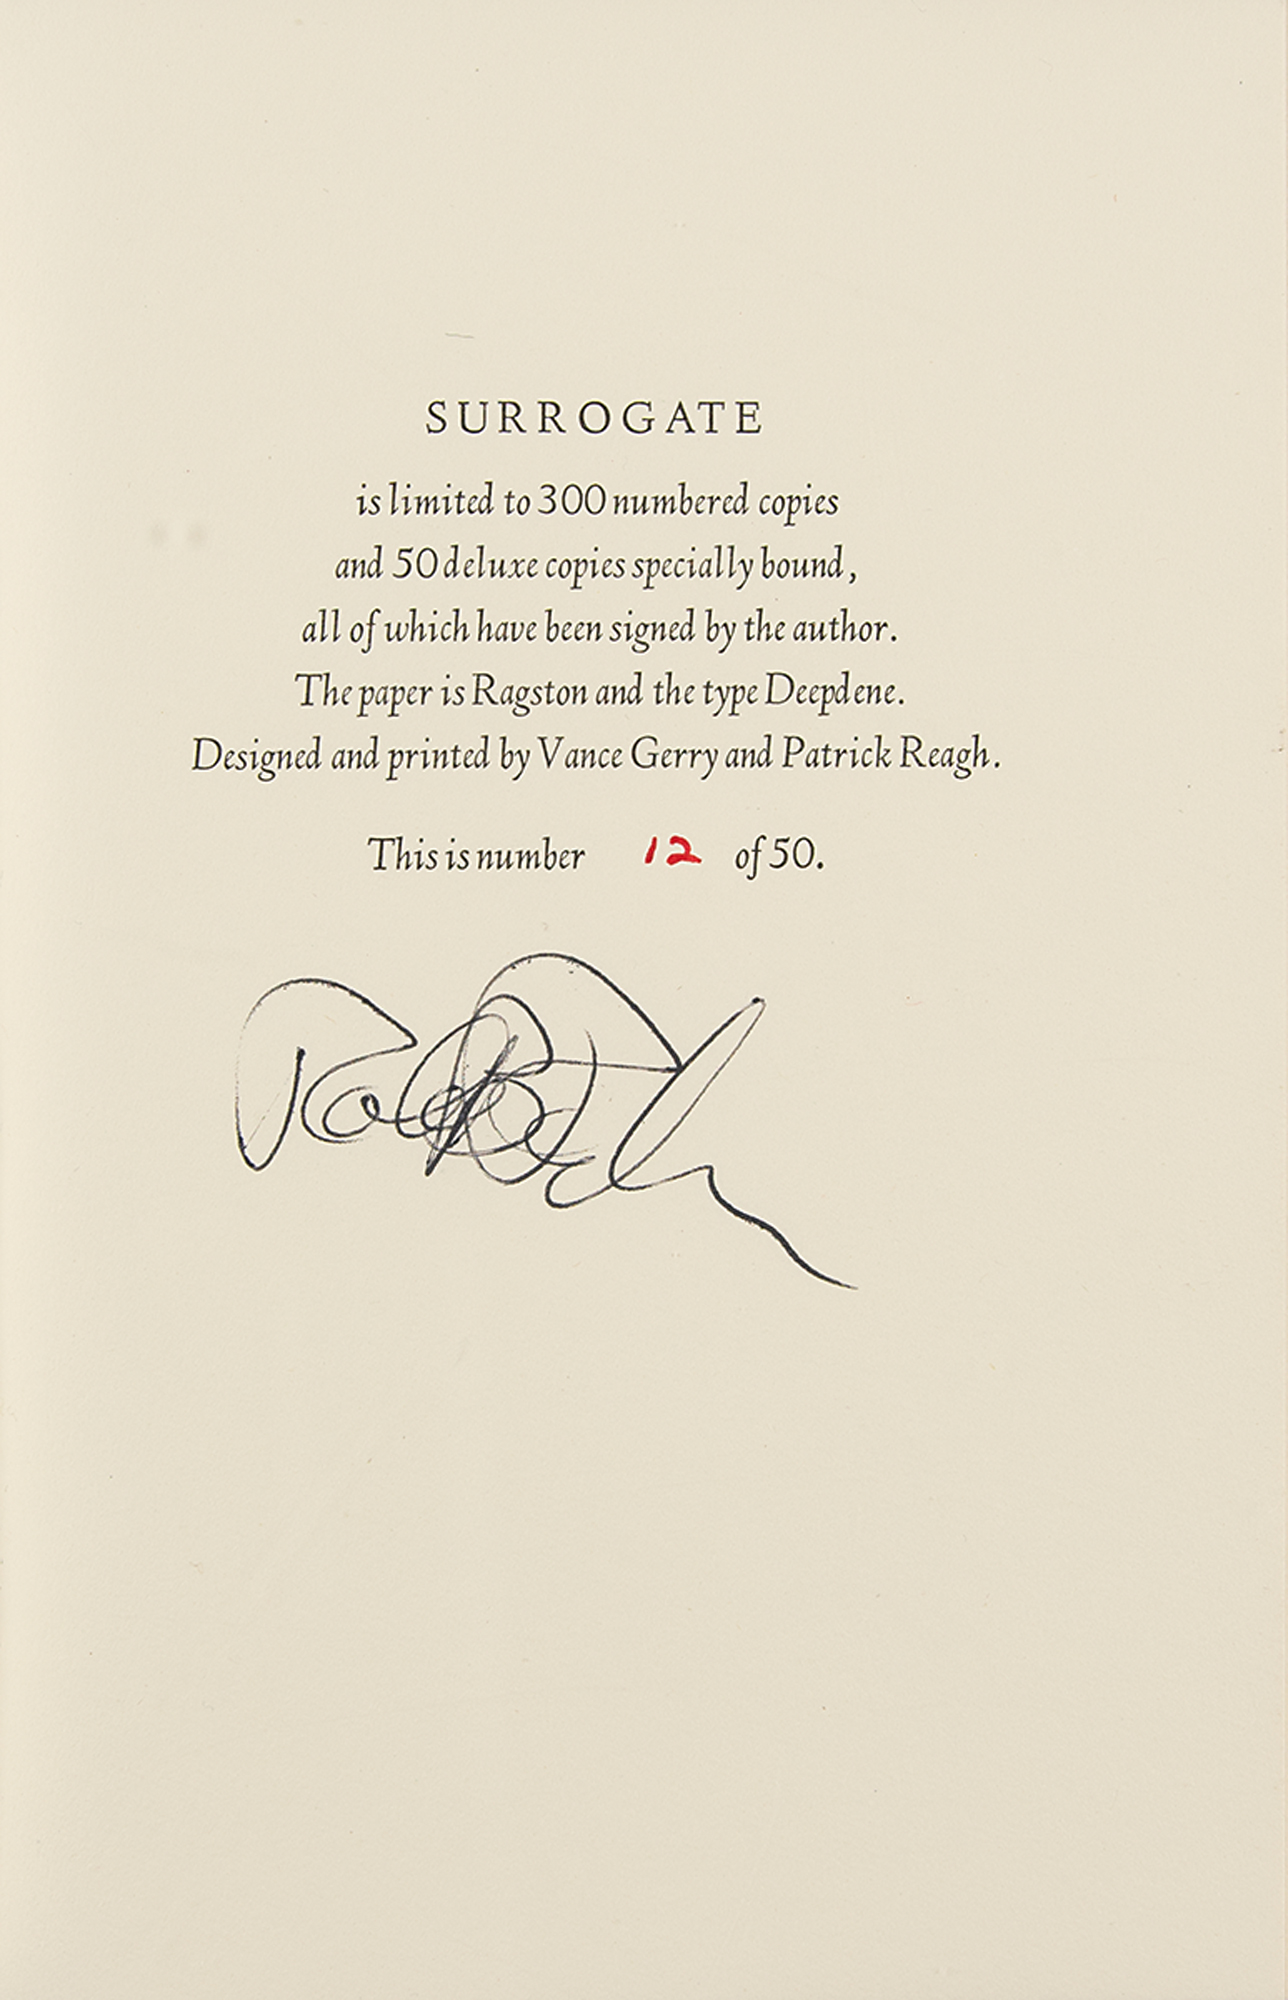 SURROGATE
is limited to 300 numbered copies
and 50 deluxe copies specially bound,
all of which have been signed by the author.
The paper is Ragston and the type Deepdene.
Designed and printed by Vance Gerry and Patrick Reagh.
This is number 12 of 50.